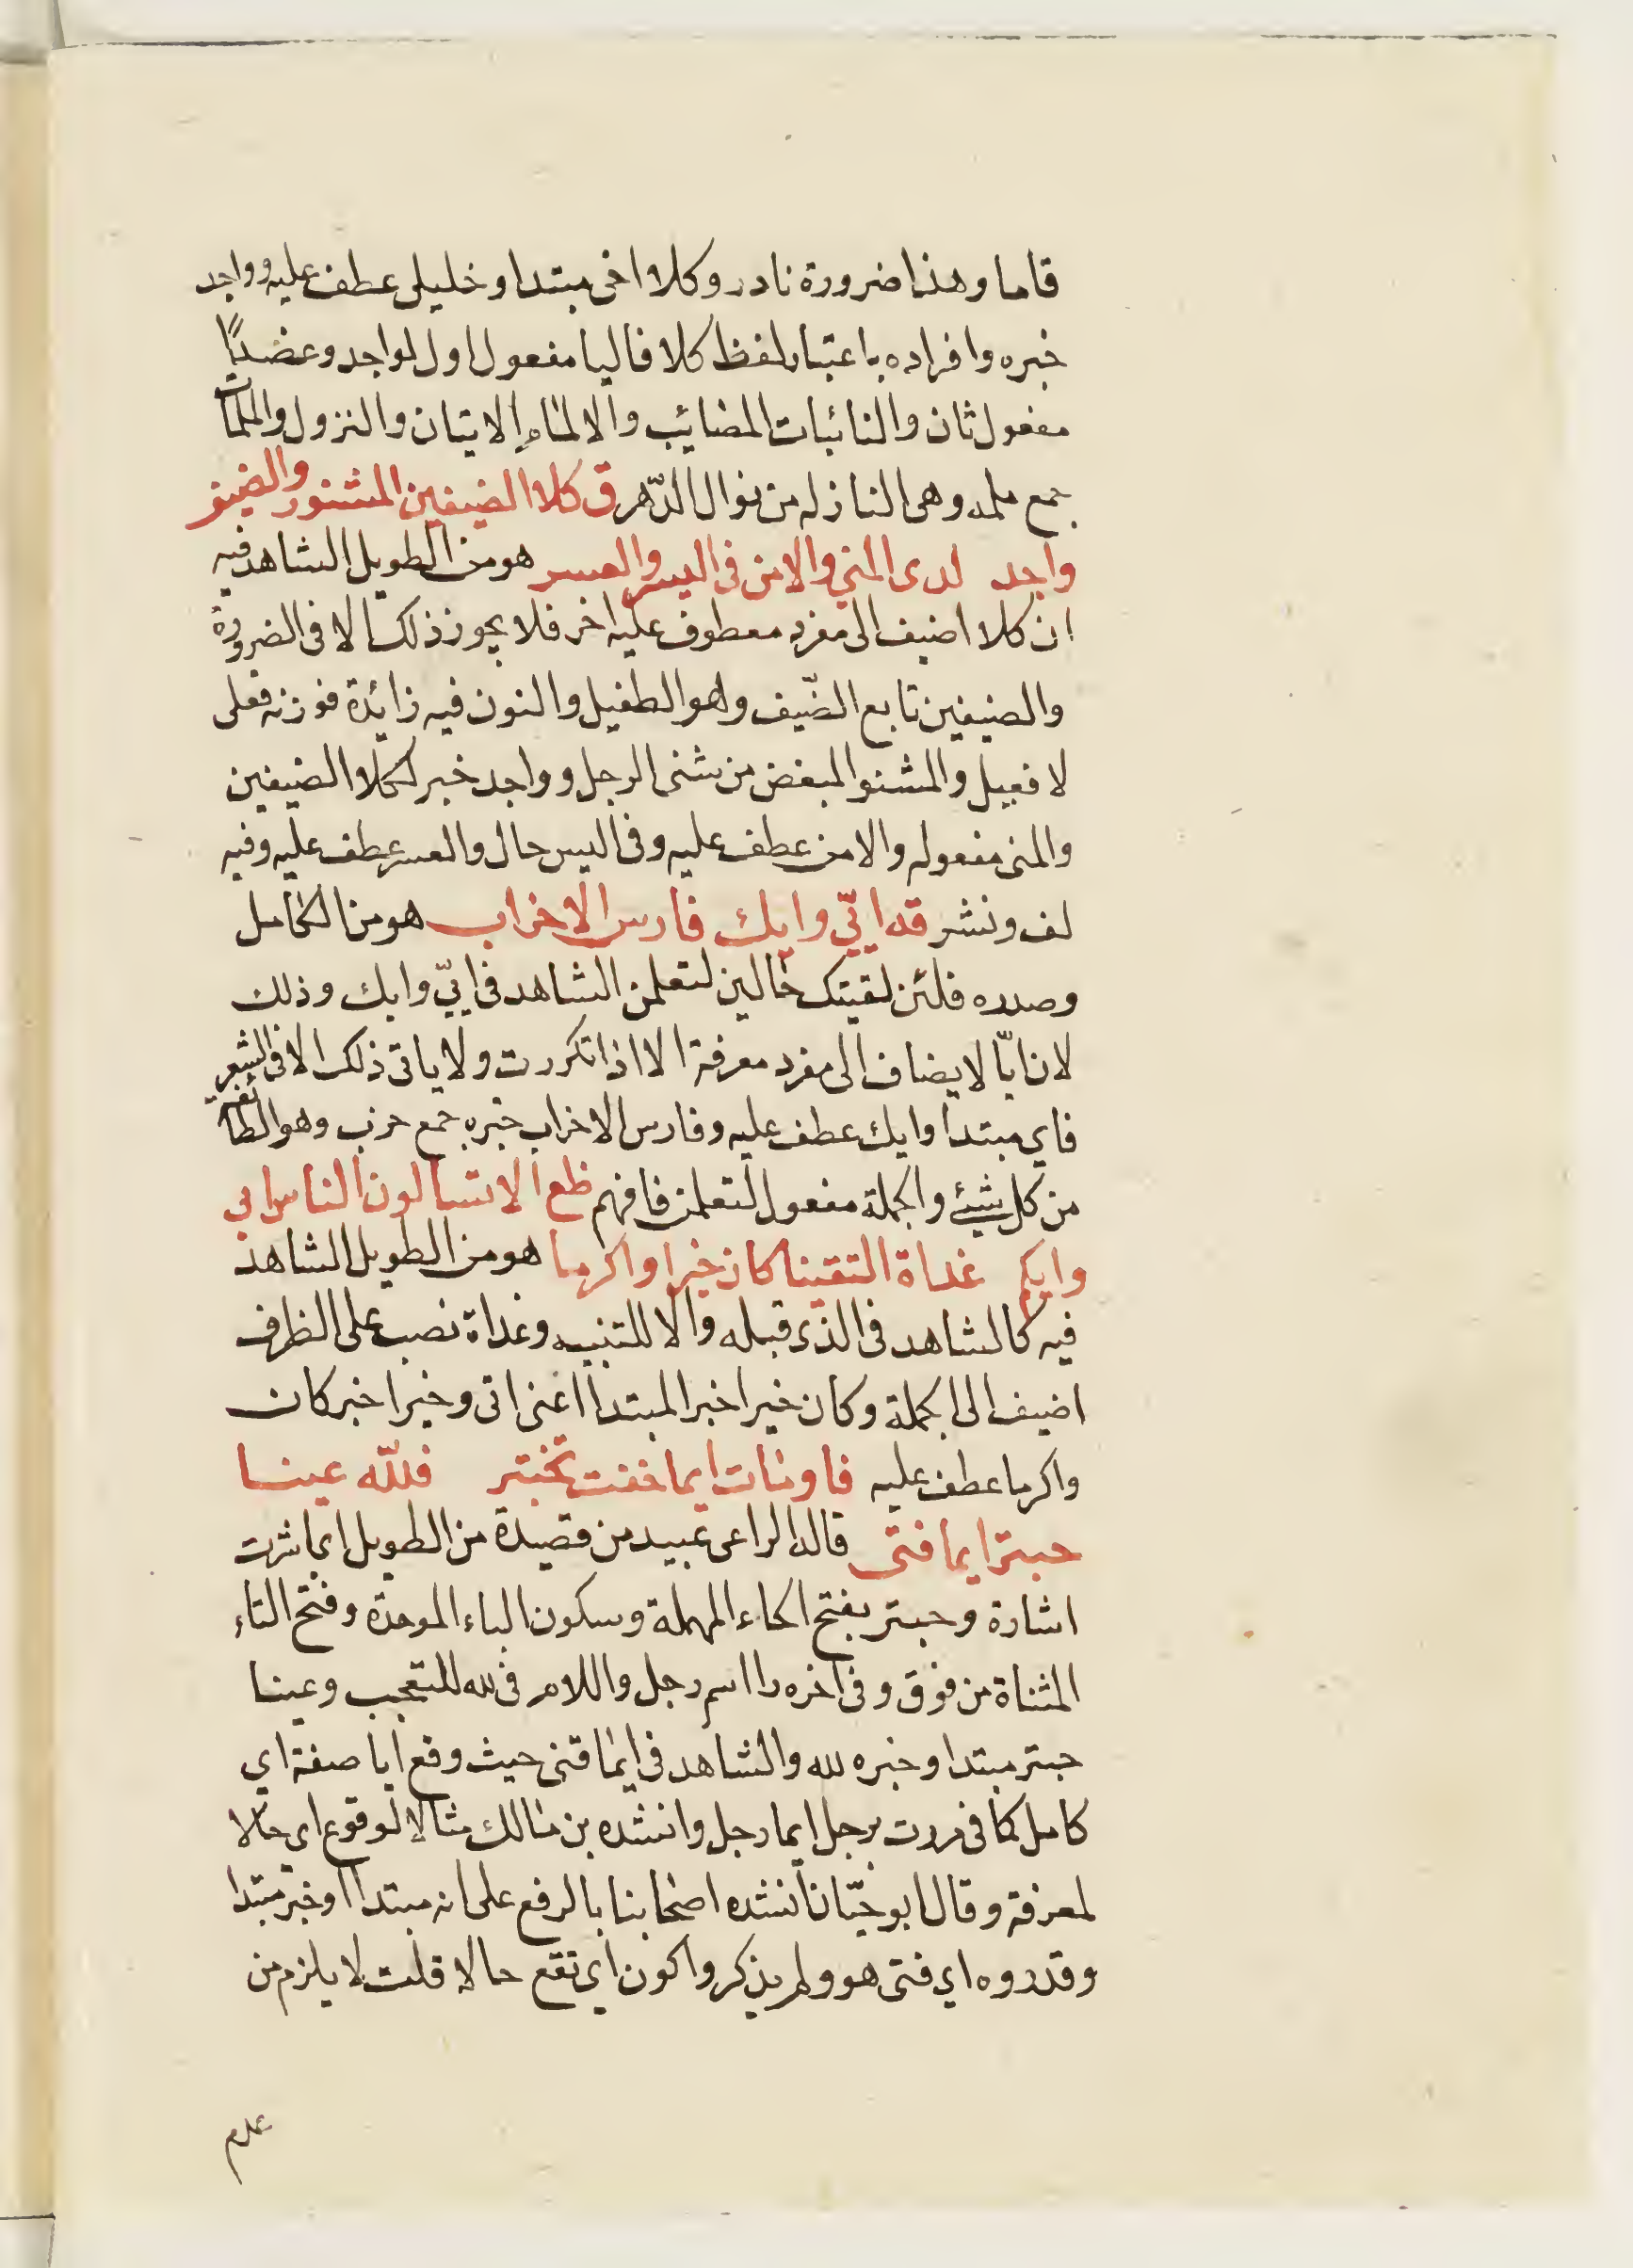 قاما وهذا ضرورة نادر وكلا اخى مبتدا وخليلى عطف عليه وواجد
خبره وافراده باعتبار لفظ كلا فاليا مفعول اول لواجد وعضدًا
مفعول ثان والنائبات المصائب والالمام الاتيان والنزول والملمات
جمع ملمه وهى النازله من نوال الدّهر ق كلا الضيفين المشنور والضيف
واجد لدى المنى والامن فى اليسر والعسر هو من الطويل الشاهد فيه
ان كلا اضيف الى مفرد معطوف عليه اخر فلا يجوز ذلك الا فى الضرورة
والضيفين تابع الضّيف وهو الطفيل والنون فيه زائدة فوزنه فعلى
لا فعيل والمشنو المبغض من شنى الرجل وواجد خبر لكلا الضيفين
والمنى مفعوله والامن عطف عليه وفى اليسر حال والعسر عطف عليه وفيه
لف ونشر قه ايّي وايك فارس الاحزاب هو من الكامل
وصدره فلئن لقيتك خالين لتعلمن الشاهد فى ايّي وايك وذلك
لان ايّا لا يضاف الى مفرد معرفة الا اذا تكررت ولا ياتى ذلك الا فى الشعر
فاي مبتدا وايك عطف عليه وفارس الاحزاب خبره جمع حزب وهو الطائفة
من كل شيئ والجملة مفعول لتعلمن فافهم ظع الا تسالون الناس ايى
وايكم غداة التقينا كان خيرا واكرما هو من الطويل الشاهد
فيه كالشاهد فى الذى قبله والا للتنبيه وغداة نصب على الظرف
اضيف الى الجملة وكان خيرا خبر المبتدا اعنى اتى وخيرا خبر كان
واكرما عطف عليه فاومات ايما خفت تختبر فللّه عينا
حبترا يما فتى قاله الراعى عبيد من قصيدة من الطويل اى اشرت
اشارة وحبتر بفتح الحاء المهملة وسكون الباء الموحدة وفتح التاء
المثناة من فوق وفى اخره را اسم رجل واللام فى لله للتعجب وعينا
حبتر مبتدا وخبره لله والشاهد فى ايما فتى حيث وقع ايا صفة اي
كامل كما فى مررت برجل ايما رجل وانشده بن مالك مثالا لوقوع اى حالا
لمعرفة وقال ابو حيّان انشده اصحابنا بالرفع على انه مبتدا او خبر مبتدا
وقدروه اي فتى هو ولم يذكروا كون اي تقع حالا قلت لا يلزم من
عدم